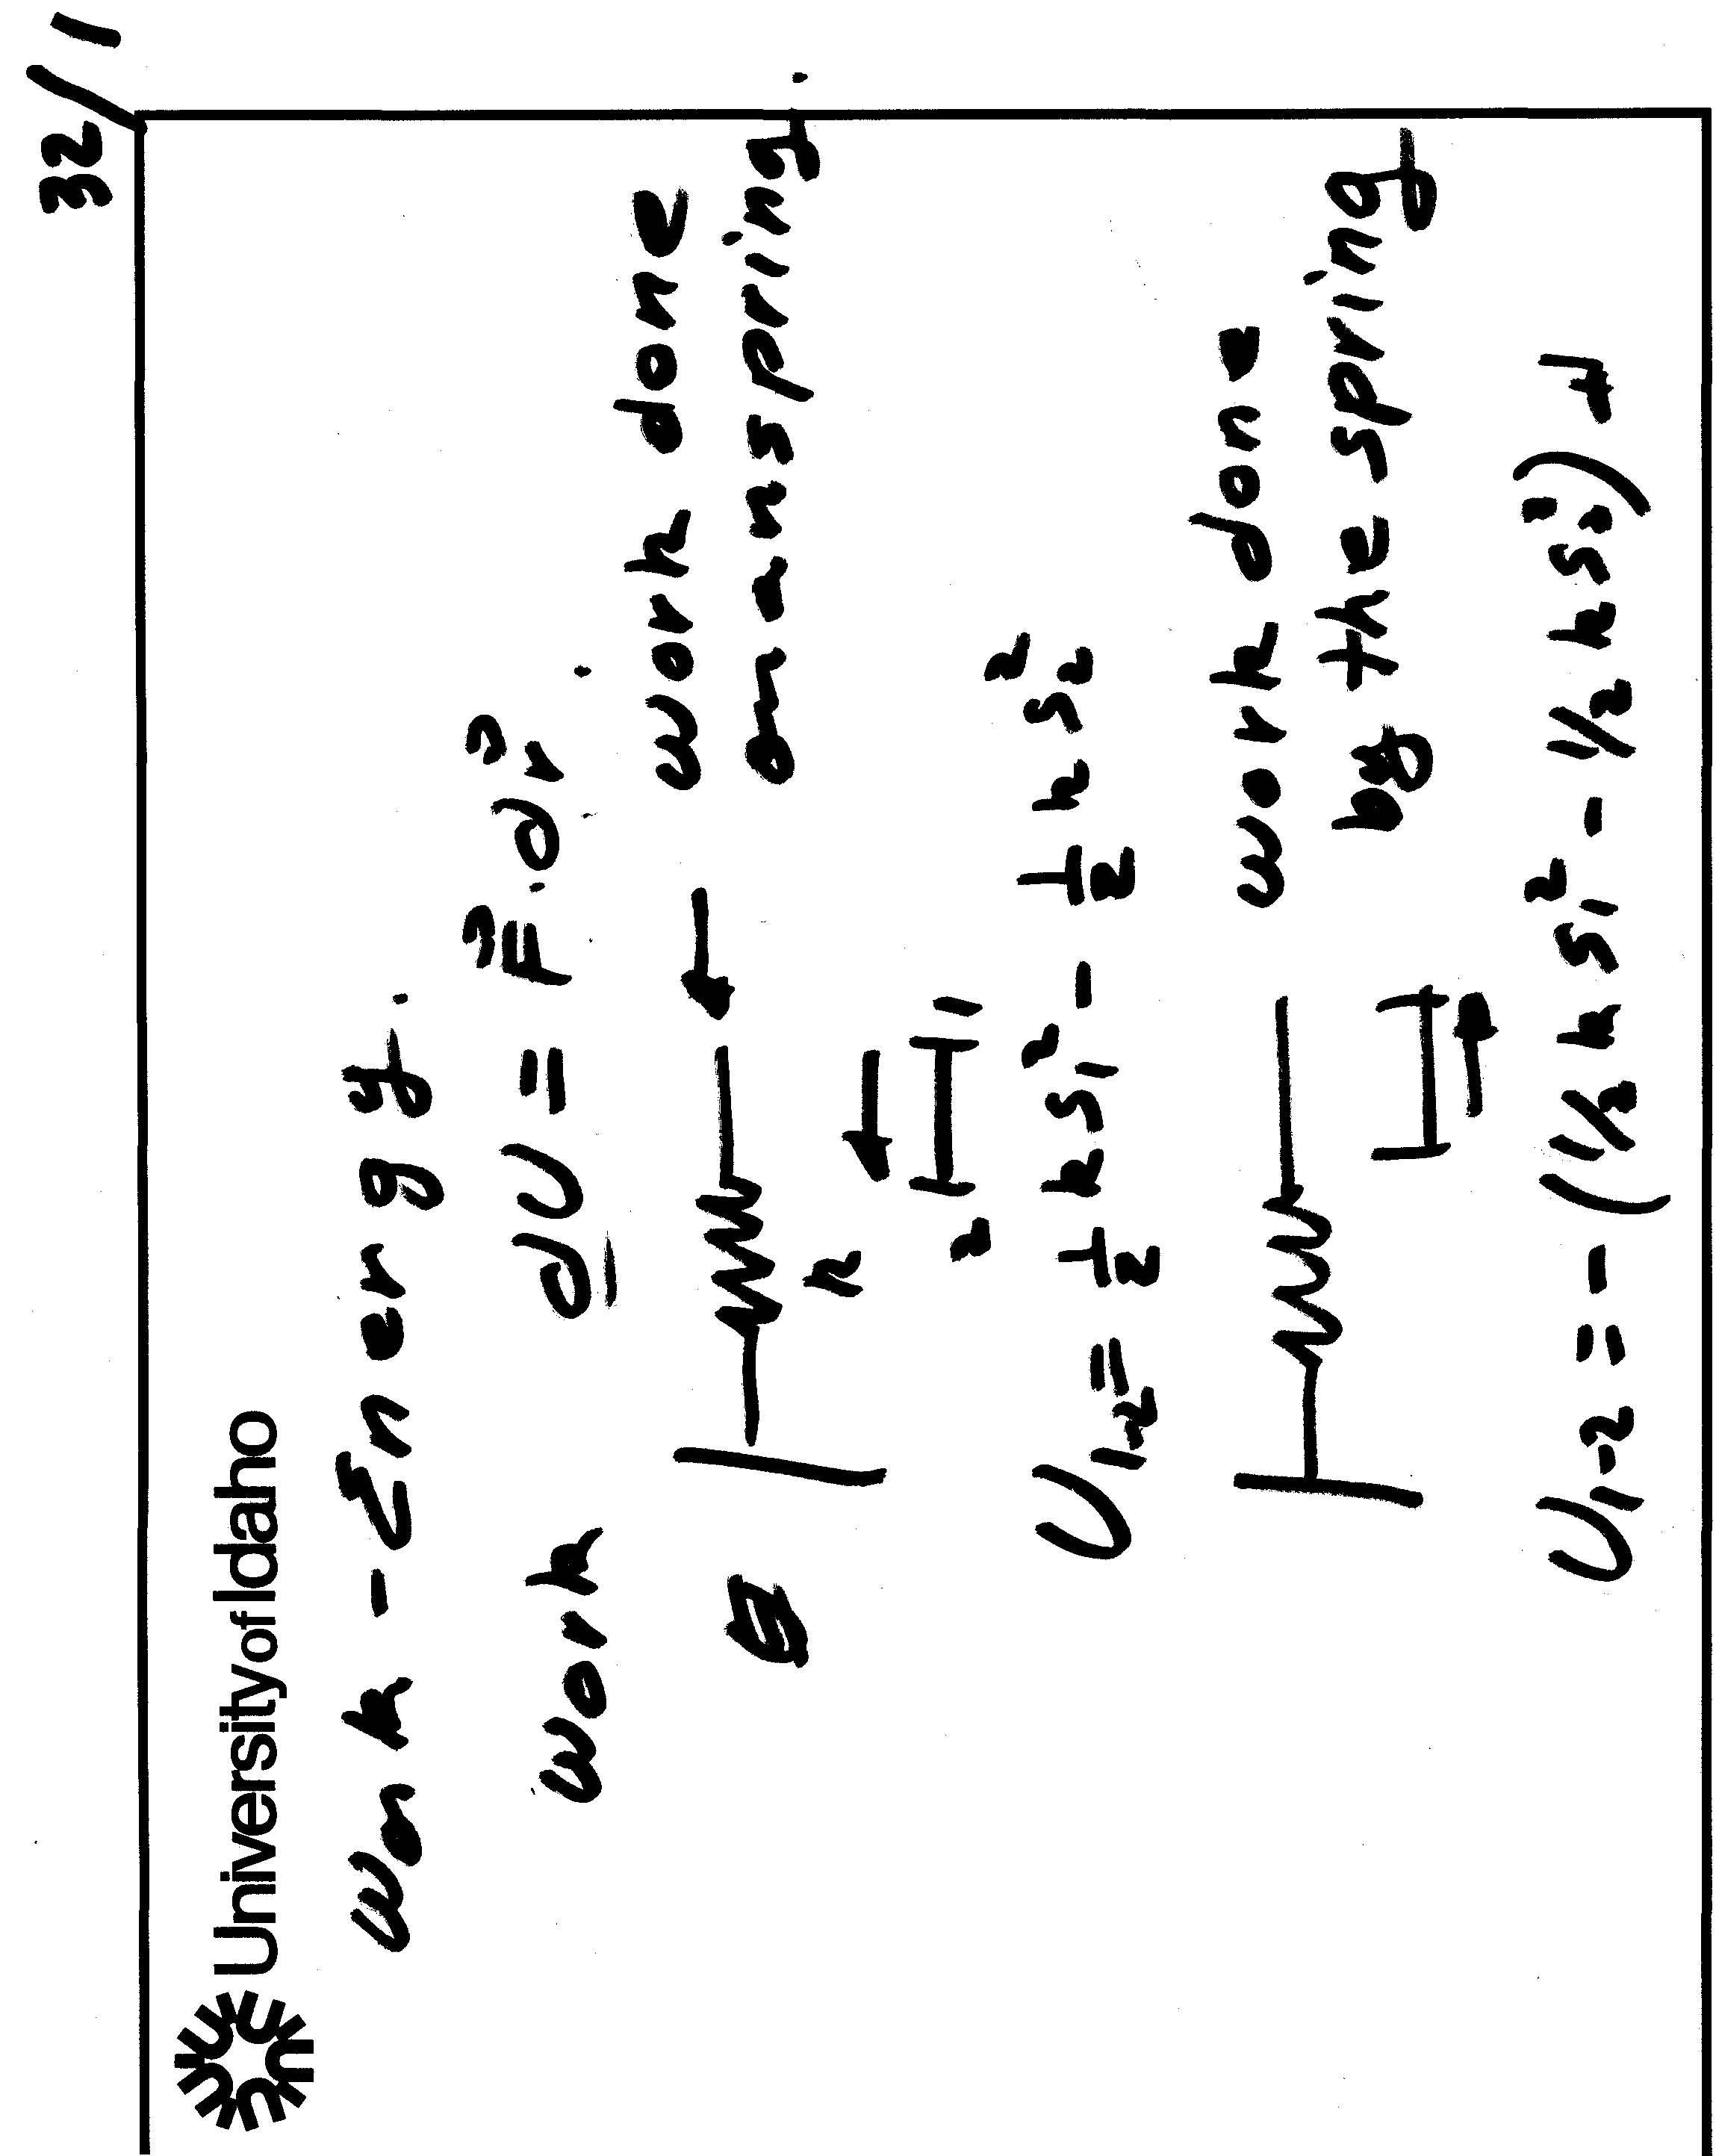 32/1
University of Idaho
Work - Energy.
Work dU = F⃗·dr⃗.
work done
on a spring.
k
2 1
U₁₋₂ = 1/2 ks₁² - 1/2 ks₂²
work done
by the spring
U₁₋₂ = -(1/2 ks₁² - 1/2 ks₂²)